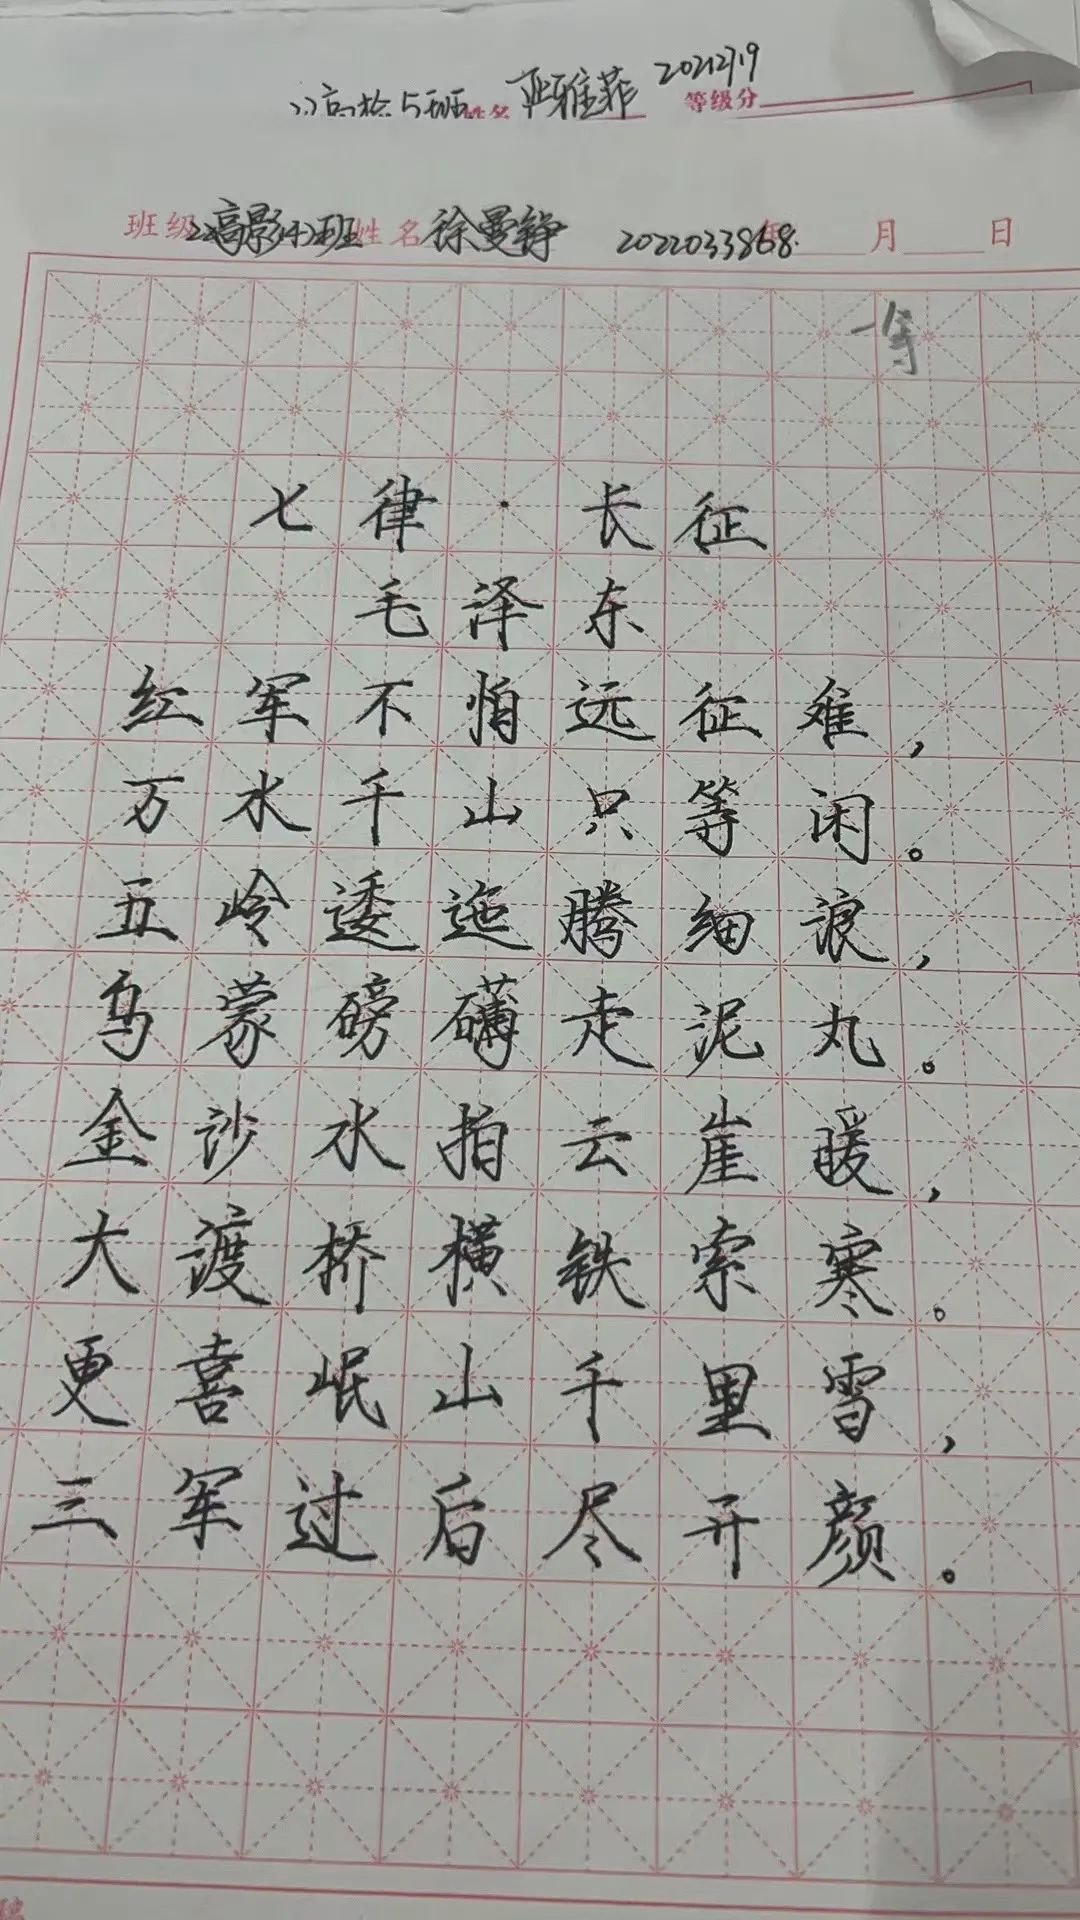 高检5班姓名 雅菲 等级分
班级22高影(4)班姓名徐曼铮 2022033868 年 月 日
一等
七律·长征
毛泽东
红军不怕远征难，
万水千山只等闲。
五岭逶迤腾细浪，
乌蒙磅礴走泥丸。
金沙水拍云崖暖，
大渡桥横铁索寒。
更喜岷山千里雪，
三军过后尽开颜。